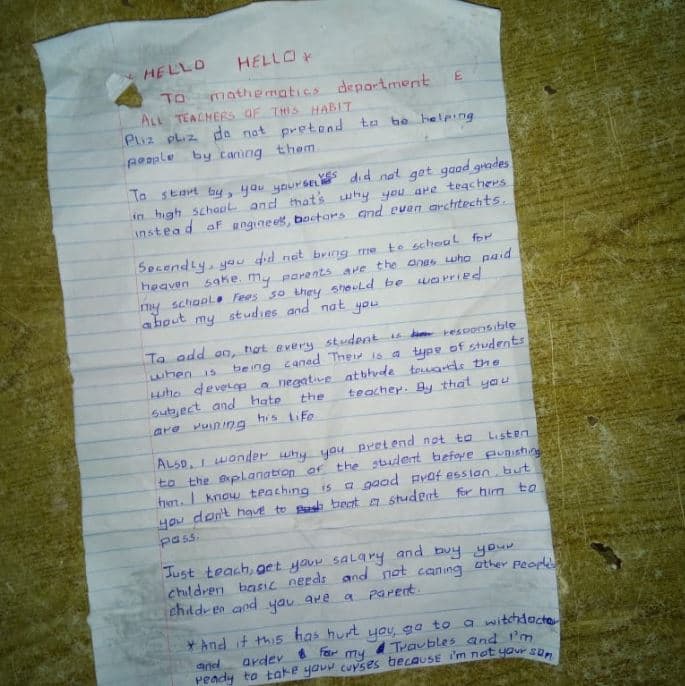 * HELLO HELLO *
To mathematics department E
ALL TEACHERS OF THIS HABIT
Pliz pliz do not pretend to be helping
people by caning them
To start by, you yourselves did not get good grades
in high school and that's why you are teachers
instead of engineers, Doctors and even archtechts.
Secondly, you did not bring me to school for
heaven sake. my parents are the ones who paid
my schools fees so they should be worried
about my studies and not you
To add on, not every student is responsible
when is being caned Their is a type of students
who develop a negative attitude towards the
subject and hate the teacher. By that you
are ruining his life
Also, I wonder why you pretend not to Listen
to the explanation of the student before punishing
him. I know teaching is a good profession but
you don't have to beat a student for him to
pass.
Just teach, get your salary and buy your
children basic needs and not caning other people's
children and you are a parent.
* And if this has hurt you, go to a witchdoctor
and order for my Troubles and I'm
ready to take your curses because i'm not your son